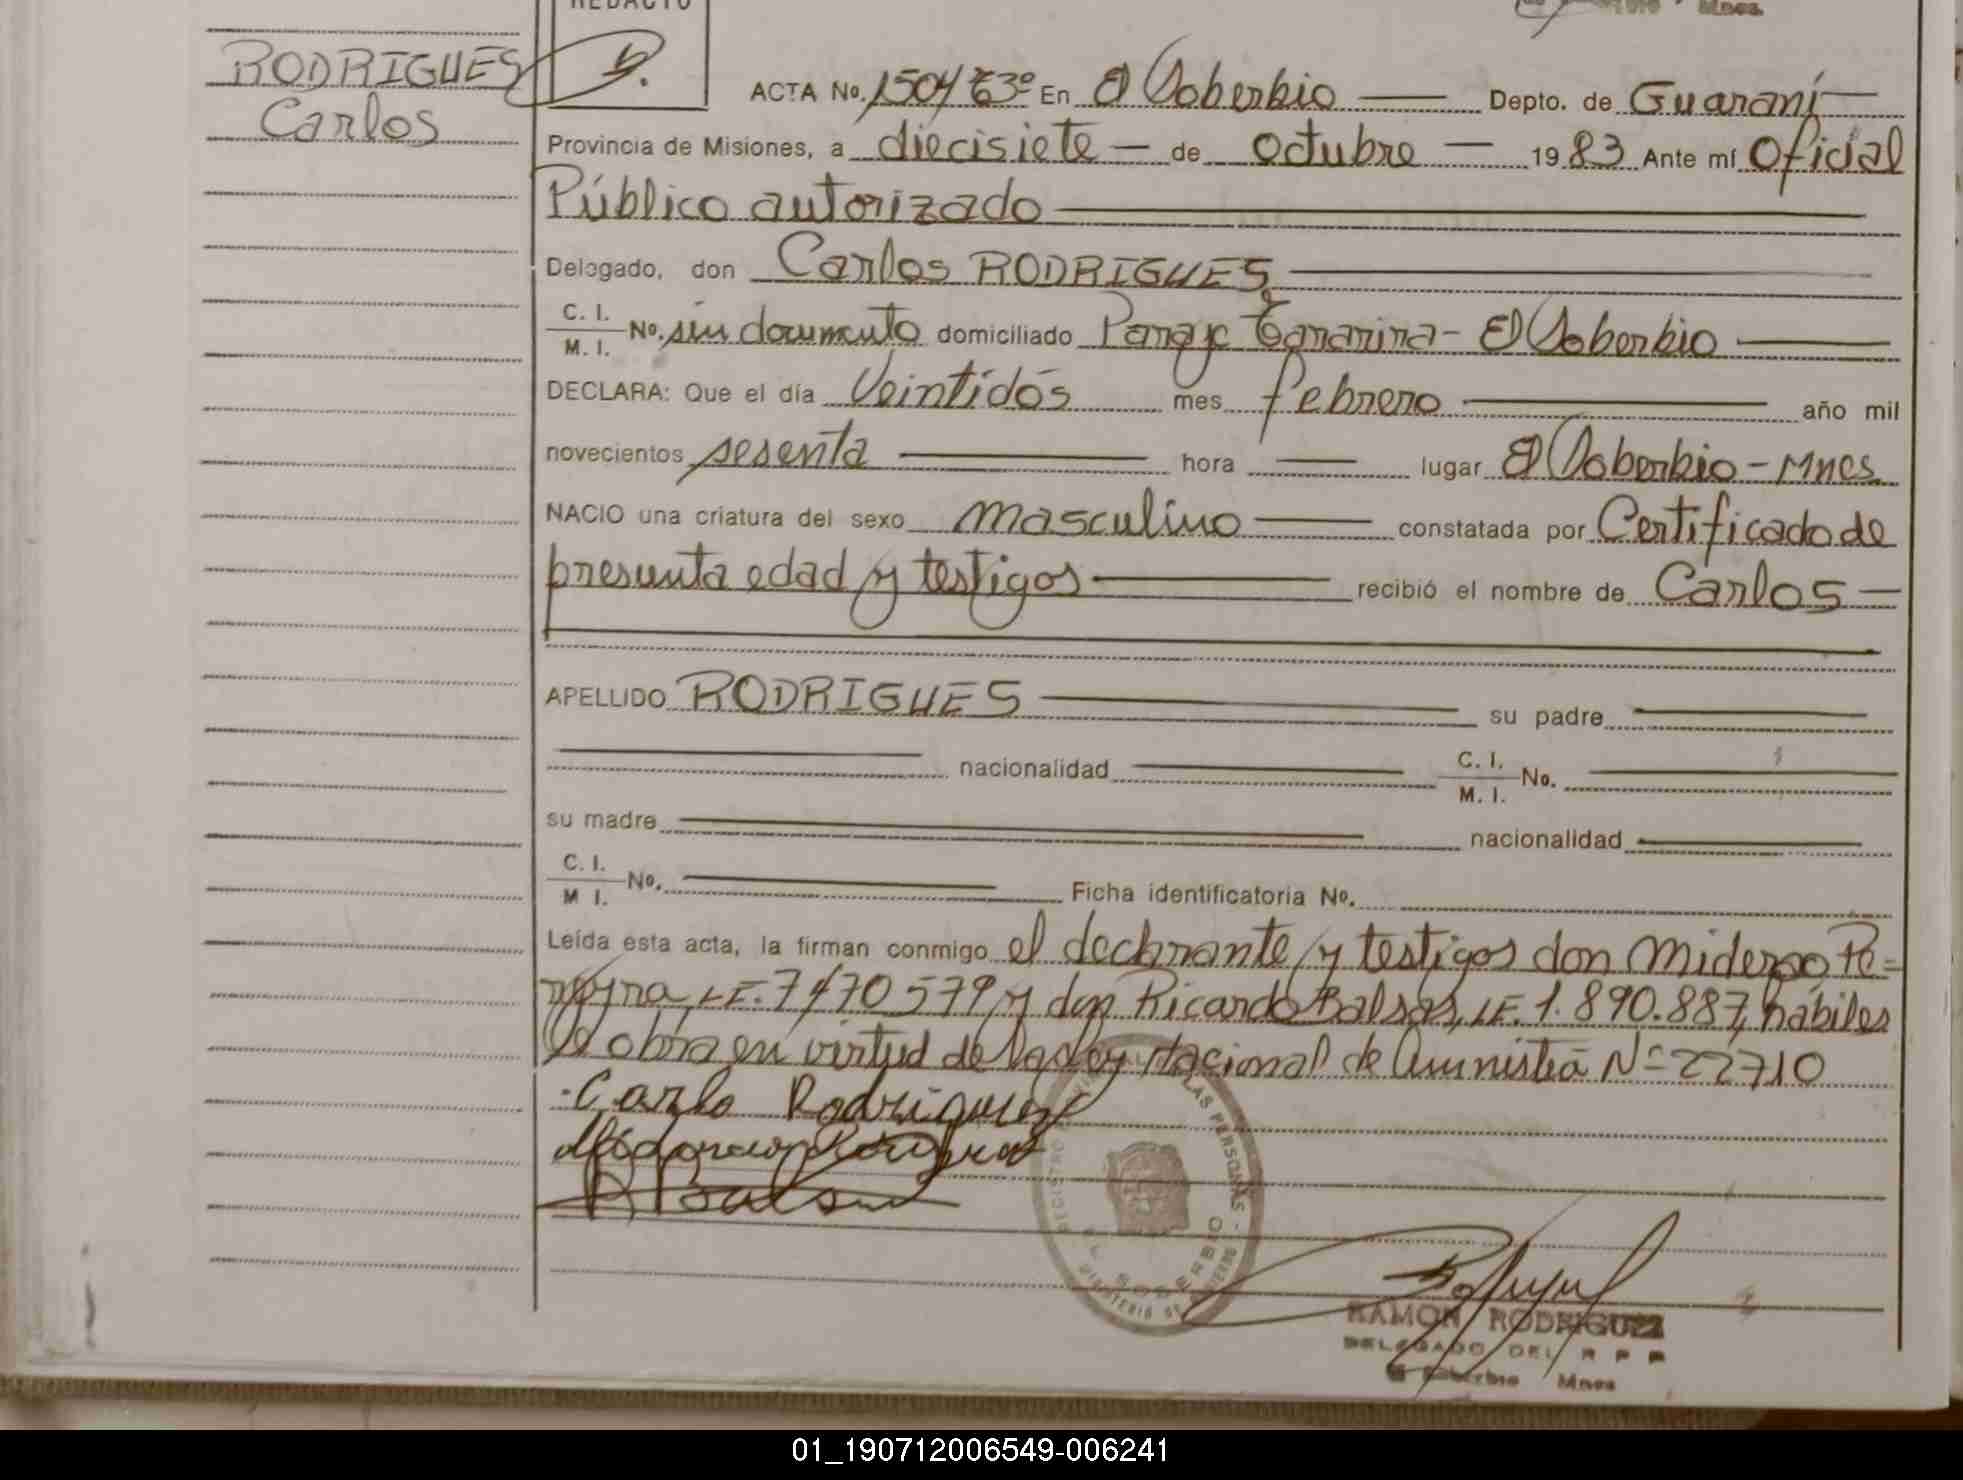 REDACTO
Mnes
RODRIGUES
Carlos
ACTA No. 1504 T3º En El Soberbio — Depto. de Guaraní —
Provincia de Misiones, a diecisiete — de octubre — 1983 Ante mí Oficial
Público autorizado
Delegado, don Carlos RODRIGUES
C. I. / M. I. No. sin documento domiciliado Paraje Tamarina - El Soberbio —
DECLARA: Que el día Veintidós mes febrero — año mil
novecientos sesenta — hora — lugar El Soberbio - Mnes
NACIO una criatura del sexo masculino — constatada por Certificado de
presunta edad y testigos — recibió el nombre de Carlos —
APELLIDO RODRIGUES — su padre —
— nacionalidad — C. I. / M. I. No. —
su madre — nacionalidad —
C. I. / M I. No. — Ficha identificatoria No.
Leída esta acta, la firman conmigo el declarante y testigos don
L.E. 7470579 y don Ricardo Balsas, L.E. 1.890.887, hábiles
Se obra en virtud de la Ley Nacional de Amnistía Nº 22710
Carlo Rodriguez
R Balsa
REGISTRO LAS PERSONAS - EL SOBERBIO
MINISTERIO DE GOBIERNO
RAMON RODRIGUEZ
DELEGADO DEL R P P
El Soberbio Mnes
01_190712006549-006241